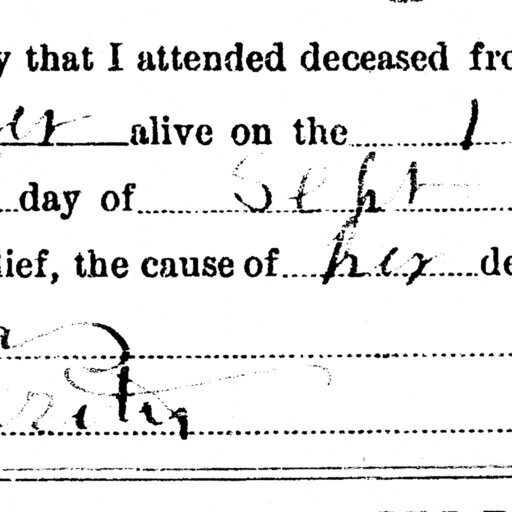 y that I attended deceased fro
her alive on the 1
day of Sept
lief, the cause of her de